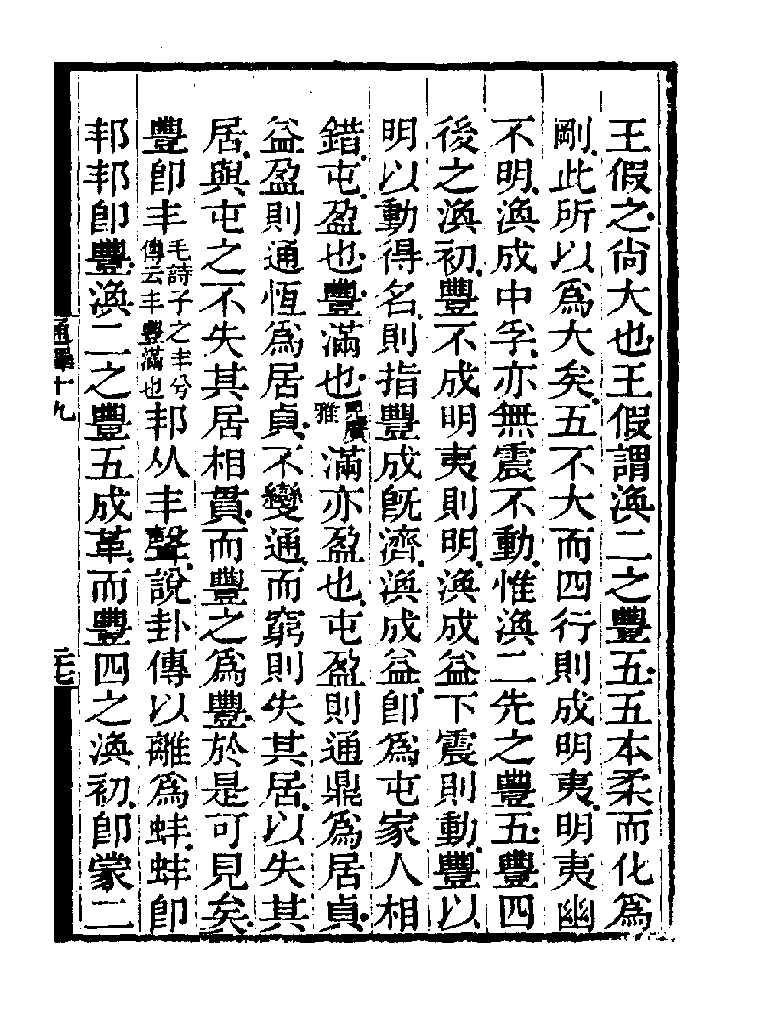 王假之尙大也王假謂渙二之豐五五本柔而化爲
剛此所以爲大矣五不大而四行則成明夷明夷幽
不明渙成中孚亦無震不動惟渙二先之豐五豐四
後之渙初豐不成明夷則明渙成益下震則動豐以
明以動得名則指豐成旣濟渙成益卽爲屯家人相
錯屯盈也豐滿也見廣雅滿亦盈也屯盈則通鼎爲居貞
益盈則通恆爲居貞不變通而窮則失其居以失其
居與屯之不失其居相貫而豐之爲豐於是可見矣
豐卽丰毛詩子之丰兮傳云丰豐滿也邦从丰聲說卦傳以離爲蚌蚌卽
邦邦卽豐渙二之豐五成革而豐四之渙初卽蒙二
通釋十九